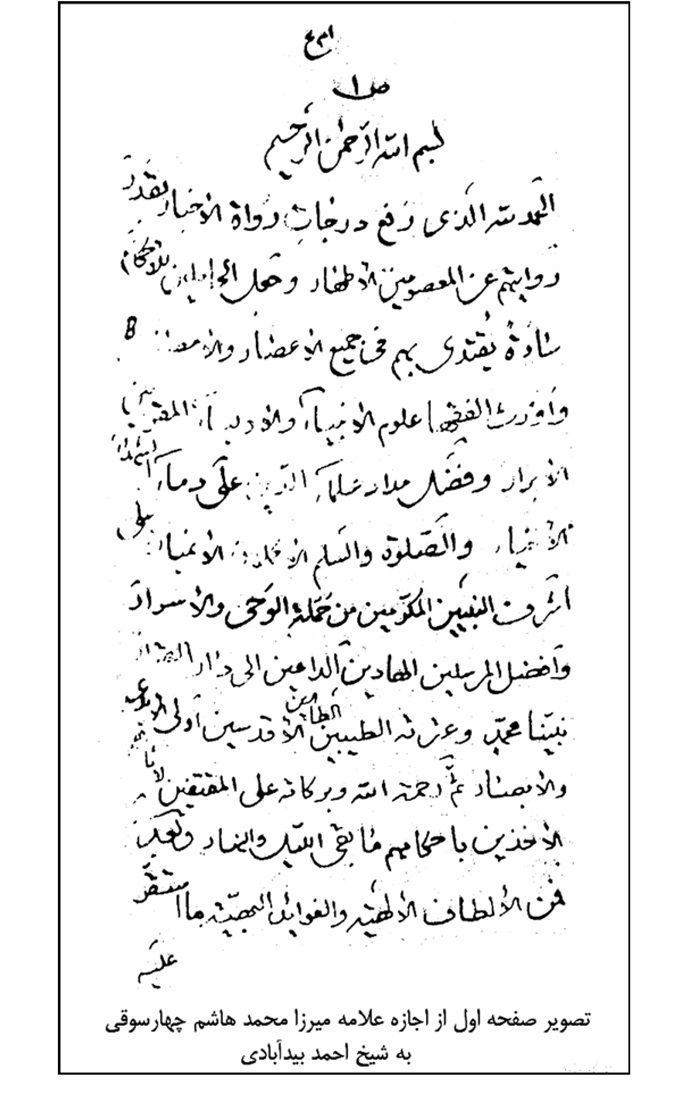 ص ۱
بسم الله الرحمن الرحیم
الحمد لله الذی رفع درجات رواة الأخبار بقدر
روایتهم عن المعصومین الأطهار وجعل الحاملین للأحکام
سادة یقتدی بهم فی جمیع الأعصار والأمصار
وأورث الفقهاء علوم الأنبیاء والأوصیاء المقربین
الأبرار وفضل مداد علماء الدین علی دماء
الأخیار والصلوة والسلم علی
أشرف النبیین المکرمین من حملة الوحی والأسرار
وأفضل المرسلین الهادین الداعین الی دار القرار
نبینا محمد وعترته الطیبین الطاهرین الأقدسین أولی الأیدی
والأبصار ثم رحمة الله وبرکاته علی المقتفین لآثارهم
الآخذین باحکامهم ما بقی اللیل والنهار وبعد
فمن الألطاف الألهیة والفوائد البهیة ما استقر
علیه
تصویر صفحه اول از اجازه علامه میرزا محمد هاشم چهارسوقی
به شیخ احمد بیدآبادی